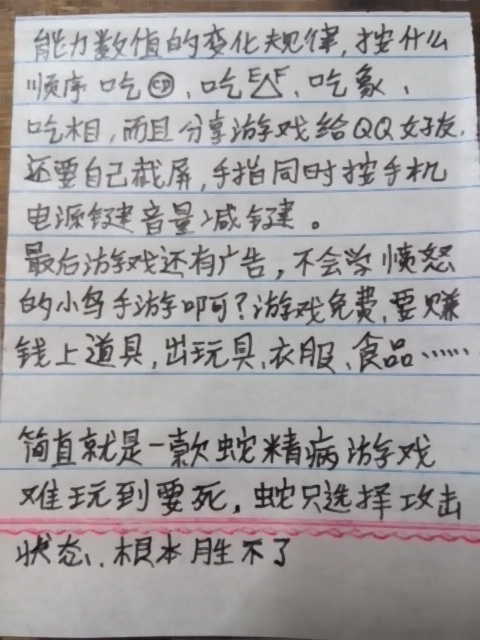 能力数值的变化规律,按什么
顺序吃CD、吃E△F、吃象、
吃相,而且分享游戏给QQ好友.
还要自己截屏,手指同时按手机
电源键音量减键。
最后游戏还有广告,不会学愤怒
的小鸟手游啊?游戏免费,要赚
钱上道具,出玩具、衣服、食品……
简直就是一款蛇精病游戏
难玩到要死,蛇只选择攻击
状态、根本胜不了